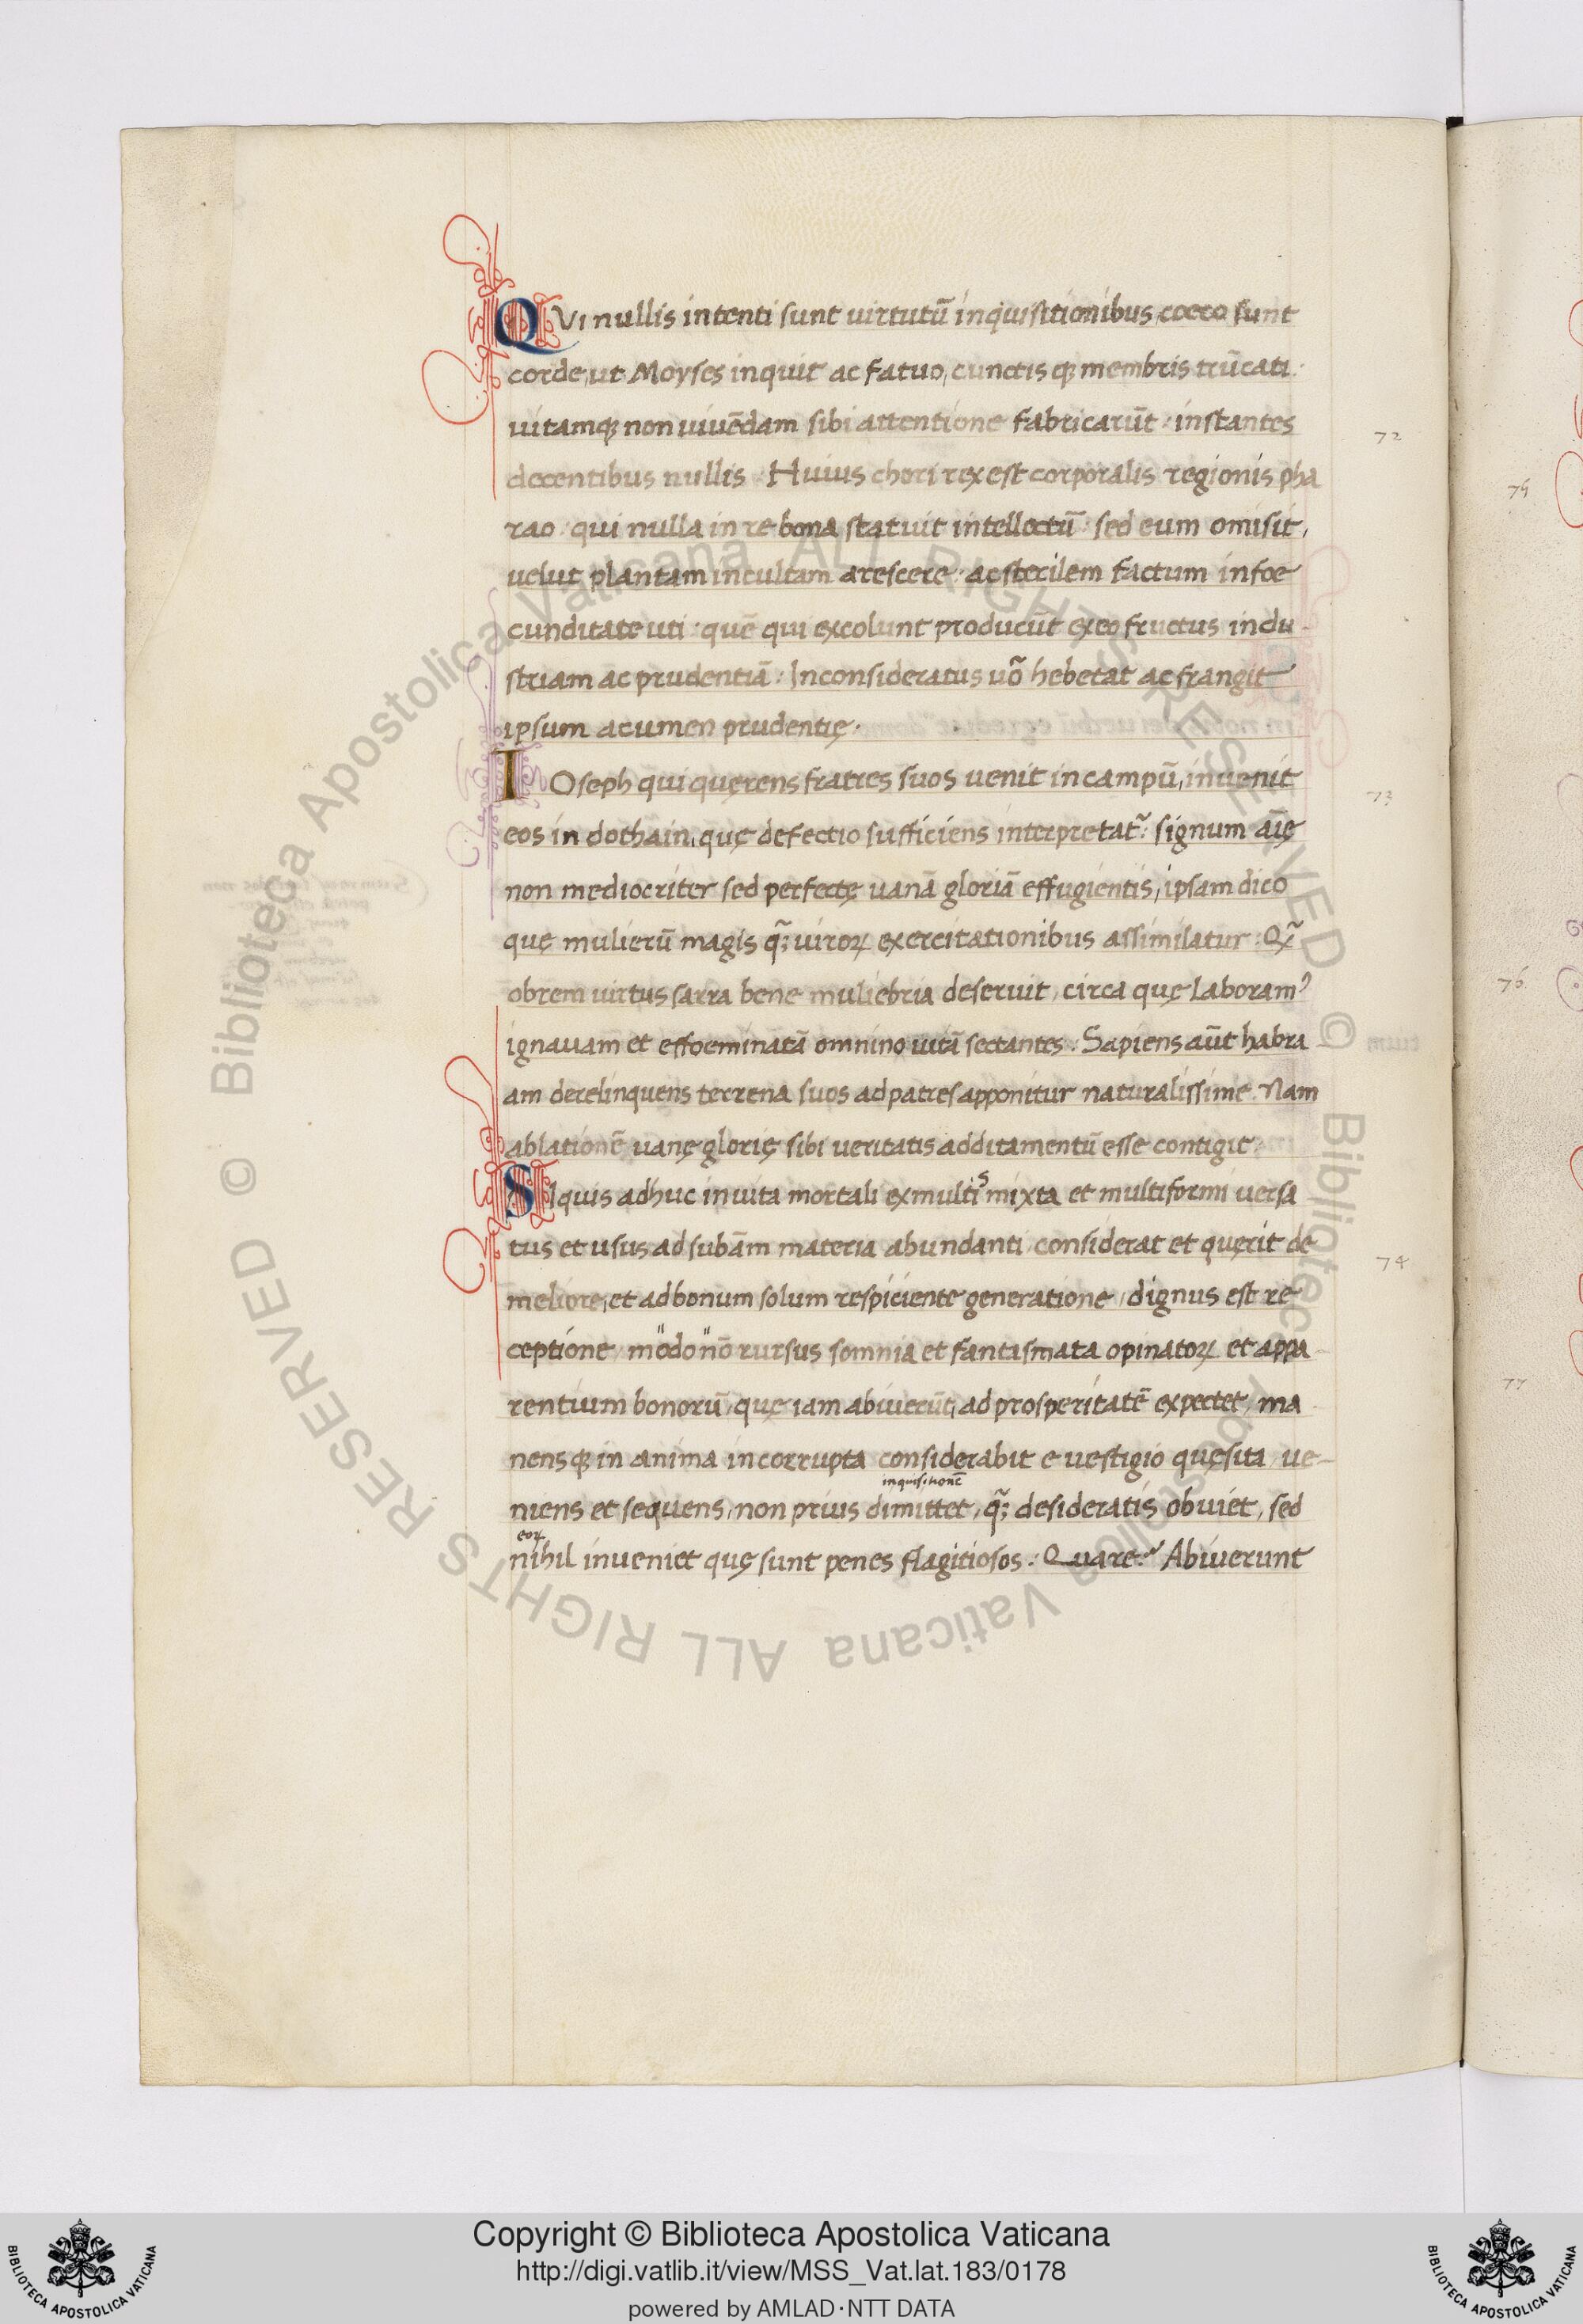 QVi nullis intenti sunt uirtutū inquisitionibus, coeco sunt
corde, ut Moyses inquit ac fatuo, cunctisqȝ membris trūcati:
uitamqȝ non uiuēdam sibi attentione fabricarūt: instantes
decentibus nullis. Huius chori rex est corporalis regionis pha
rao: qui nulla in re bona statuit intellectū: sed eum omisit,
uelut plantam incultam arescere: ac sterilem factum infoe
cunditate uti: quē qui excolunt producūt ex eo fructus indu
striam ac prudentiā: Inconsideratus uo᷃ hebetat ac frangit
ipsum acumen prudentię.
IOseph qui quęrens fratres suos uenit in campū, inuenit
eos in dothain, quę defectio sufficiens interpretat᷃: signum aīę
non mediocriter sed perfectę uanā gloriā effugientis, ipsam dico
quę mulierū magis q᷃; uiroꝝ exercitationibus assimilatur: Q᷃
obrem uirtus sarra bene muliebria deseruit, circa quę laboramꝰ
ignauam et effoeminatā omnino uitā sectantes: Sapiens aūt habra
am derelinquens terrena suos ad patres apponitur naturalissime. Nam
ablationē uanę glorię sibi ueritatis additamentū esse contigit:
SI quis adhuc in uita mortali ex multis mixta et multiformi uersa
tus et usus ad subām materia abundanti considerat et quęrit de
meliore, et ad bonum solum respiciente generatione, dignus est re
ceptione, mōdo nō rursus somnia et fantasmata opinatoꝝ et appa
rentium bonorū, quę iam abiuerūt, ad prosperitatē expectet, ma
nensqȝ in anima incorrupta considerabit e uestigio quęsita, ue-
inquisitionē
niens et sequens, non prius dimittet, q᷃; desideratis obuiet, sed
eoꝝ
nihil inueniet quę sunt penes flagitiosos: Quare? Abiuerunt
72
73
74
75
76
77
Copyright © Biblioteca Apostolica Vaticana
http://digi.vatlib.it/view/MSS_Vat.lat.183/0178
powered by AMLAD·NTT DATA
BIBLIOTECA APOSTOLICA VATICANA
BIBLIOTECA APOSTOLICA VATICANA
© Biblioteca Apostolica Vaticana ALL RIGHTS RESERVED © Biblioteca Apostolica Vaticana ALL RIGHTS RESERVED